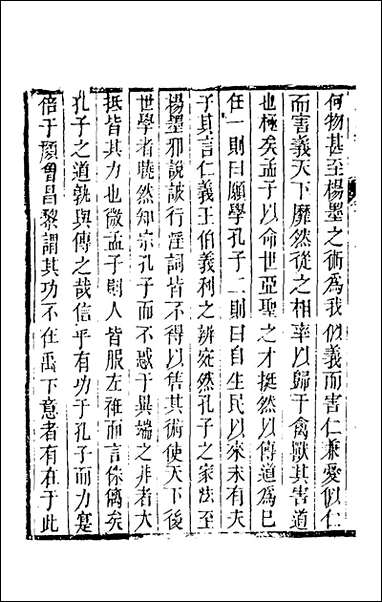 何物甚至楊墨之術為我似義而害仁兼愛似仁
而害義天下靡然從之相率以歸于禽獸其害道
也極矣孟子以命世亞聖之才挺然以傳道為巳
任一則曰願學孔子二則曰自生民以來未有夫
子其言仁義王伯義利之辨宛然孔子之家法至
楊墨邪說詖行淫詞皆不得以售其術使天下後
世學者曉然知宗孔子而不惑于異端之非者大
抵皆其力也微孟子則人皆服左衽而言侏儷矣
孔子之道孰與傳之哉信乎有功于孔子而力寔
倍于顏魯昌黎謂其功不在禹下意者有在于此